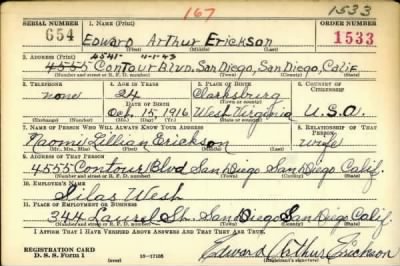 167 1533
SERIAL NUMBER 1. NAME (Print) ORDER NUMBER
654 Edward Arthur Erickson 1533
(First) (Middle) (Last)
2. ADDRESS (Print) 4541- 4-1-43
4555 Contour Blvd. San Diego, San Diego, Calif.
(Number and street or R. F. D. number) (Town) (County) (State)
3. TELEPHONE 4. AGE IN YEARS 5. PLACE OF BIRTH 6. COUNTRY OF CITIZENSHIP
none 24 Clarksburg
DATE OF BIRTH (Town or county)
Oct. 15, 1916 West Virginia U.S.A.
(Exchange) (Number) (Mo.) (Day) (Yr.) (State or country)
7. NAME OF PERSON WHO WILL ALWAYS KNOW YOUR ADDRESS 8. RELATIONSHIP OF THAT PERSON
Naomi Lillian Erickson wife
(Mr., Mrs., Miss) (First) (Middle) (Last)
9. ADDRESS OF THAT PERSON
4555 Contour Blvd San Diego San Diego Calif.
(Number and street or R. F. D. number) (Town) (County) (State)
10. EMPLOYER'S NAME
Silas West
11. PLACE OF EMPLOYMENT OR BUSINESS
344 Laurel St. San Diego San Diego Calif.
(Number and street or R. F. D. number) (Town) (County) (State)
I AFFIRM THAT I HAVE VERIFIED ABOVE ANSWERS AND THAT THEY ARE TRUE.
REGISTRATION CARD
D. S. S. Form 1 16-17105 Edward Arthur Erickson
(over) (Registrant's signature)